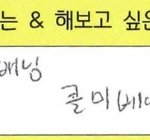 는 & 해보고 싶은
배닝
콜미베